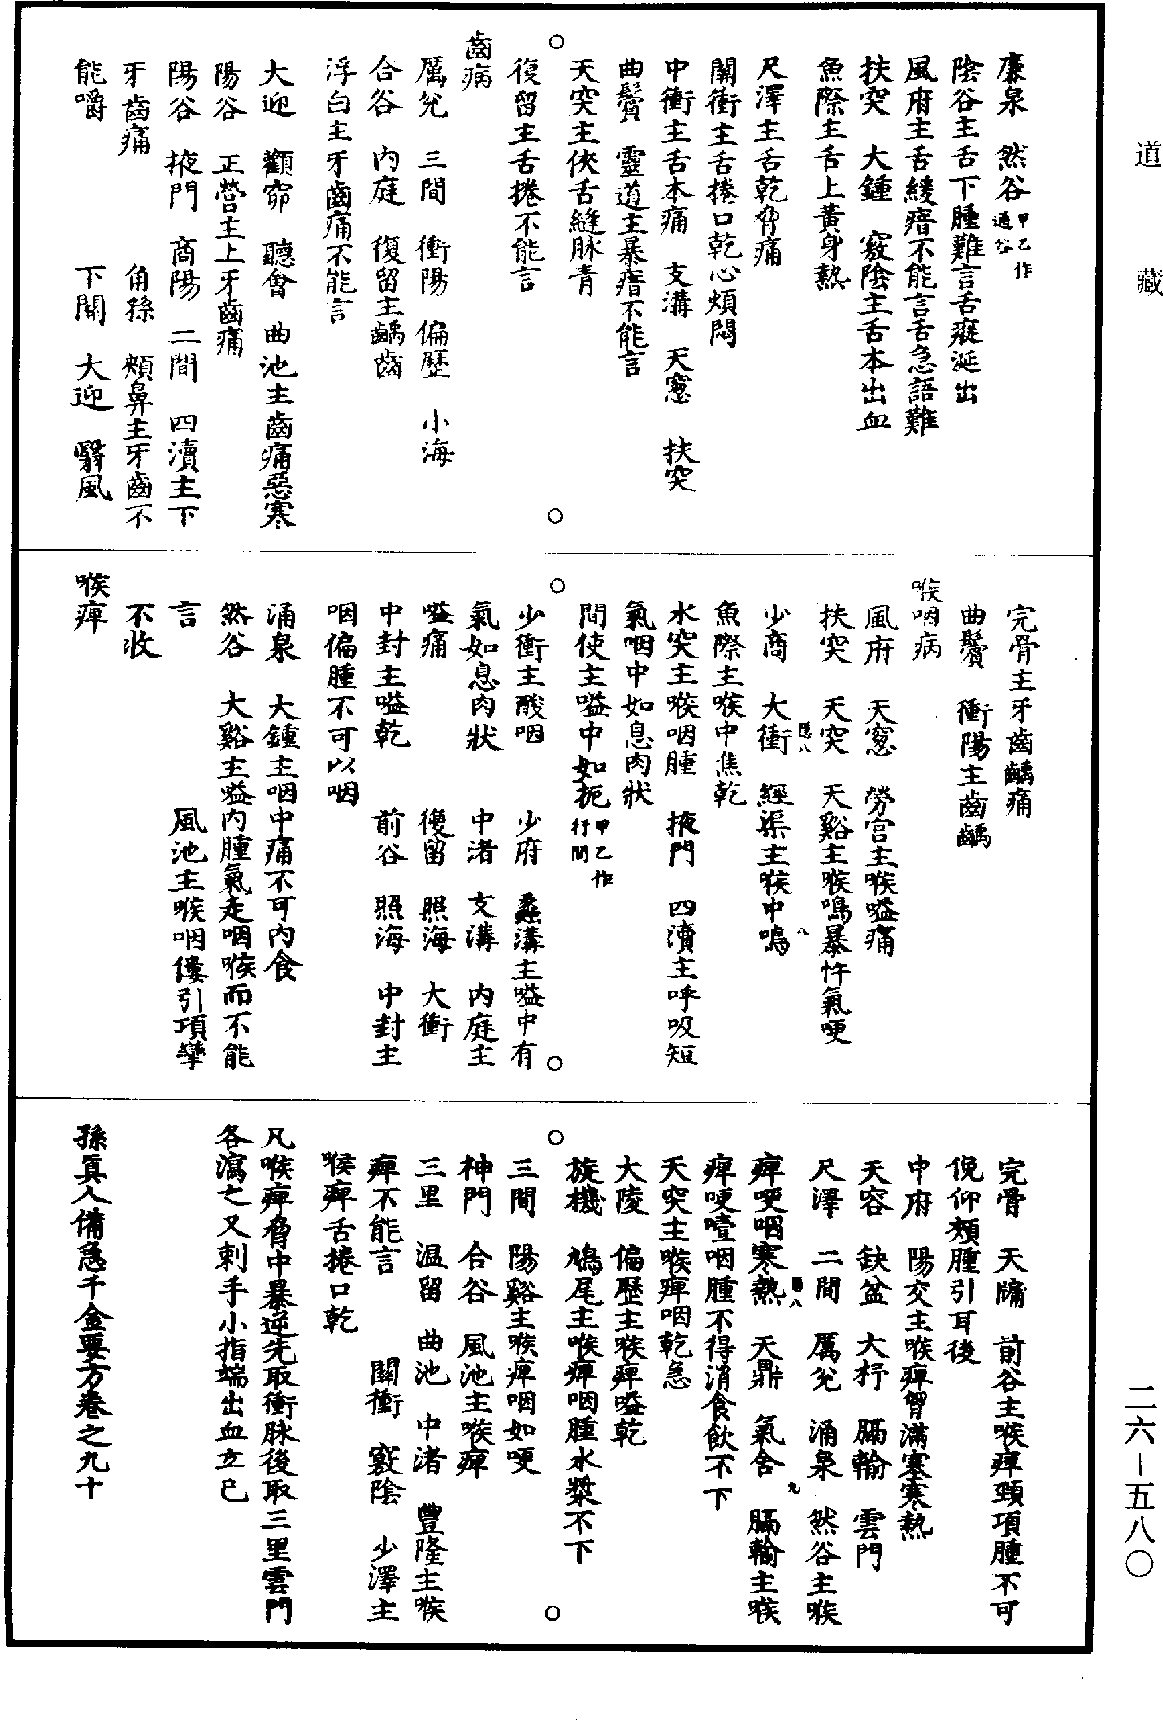 道藏
廉泉　然谷甲乙作通谷
陰谷主舌下腫難言舌瘲涎出
風府主舌緩瘖不能言舌急語難
扶突　大鍾　竅陰主舌本出血
魚際主舌上黃身熱
尺澤主舌乾脅痛
關衝主舌捲口乾心煩悶
中衝主舌本痛　支溝　天窻　扶突
曲鬢　靈道主暴瘖不能言
天突主俠舌縫脉青
復留主舌捲不能言
齒病
厲兌　三間　衝陽　偏歷　小海
合谷　內庭　復留主齲齒
浮白主牙齒痛不能言
大迎　顴窌　聽會　曲池主齒痛惡寒
陽谷　正營主上牙齒痛
陽谷　掖門　商陽　二間　四瀆主下
牙齒痛　角孫　頰鼻主牙齒不
能嚼　下關　大迎　翳風
完骨主牙齒齲痛
曲鬢　衝陽主齒齲
喉咽病
風府　天窻　勞宮主喉嗌痛
扶突　天突　天谿主喉鳴暴忤氣哽
少商　大衝　經渠主喉中鳴
魚際主喉中焦乾
水突主喉咽腫　掖門　四瀆主呼吸短
氣咽中如息肉狀
間使主嗌中如扼甲乙作行間
少衝主酸咽　少府　蠡溝主嗌中有
氣如息肉狀　中渚　支溝　內庭主
嗌痛　復留　照海　大衝
中封主嗌乾　前谷　照海　中封主
咽偏腫不可以咽
涌泉　大鍾主咽中痛不可內食
然谷　大谿主嗌內腫氣走咽喉而不能
言　風池主喉咽僂引項攣
不收
喉痺
完骨　天牖　前谷主喉痺頸項腫不可
俛仰頰腫引耳後
中府　陽交主喉痺胷滿塞寒熱
天容　缺盆　大杼　膈輸　雲門
尺澤　二間　厲兌　涌泉　然谷主喉
痺哽咽寒熱　天鼎　氣舍　膈輸主喉
痺哽噎咽腫不得消食飲不下
天突主喉痺咽乾急
大陵　偏歷主喉痺嗌乾
旋機　鳩尾主喉痺咽腫水漿不下
三間　陽谿主喉痺咽如哽
神門　合谷　風池主喉痺
三里　溫留　曲池　中渚　豐隆主喉
痺不能言　關衝　竅陰　少澤主
喉痺舌捲口乾
凡喉痺脅中暴逆先取衝脉後取三里雲門
各瀉之又刺手小指端出血立已
孫真人備急千金要方卷之九十
二六—五八〇